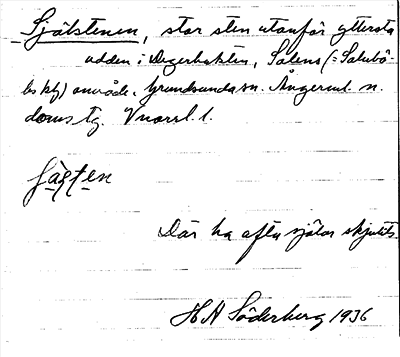 Själstenen, stor sten utanför yttersta
udden i Degerbukten, Salens (=Salubö-
les kbf) område. Grundsunda sn. Ångerml. n.
doms tg. V norrl. l.
Där ha ofta själar skjutits.
H A Söderberg 1936